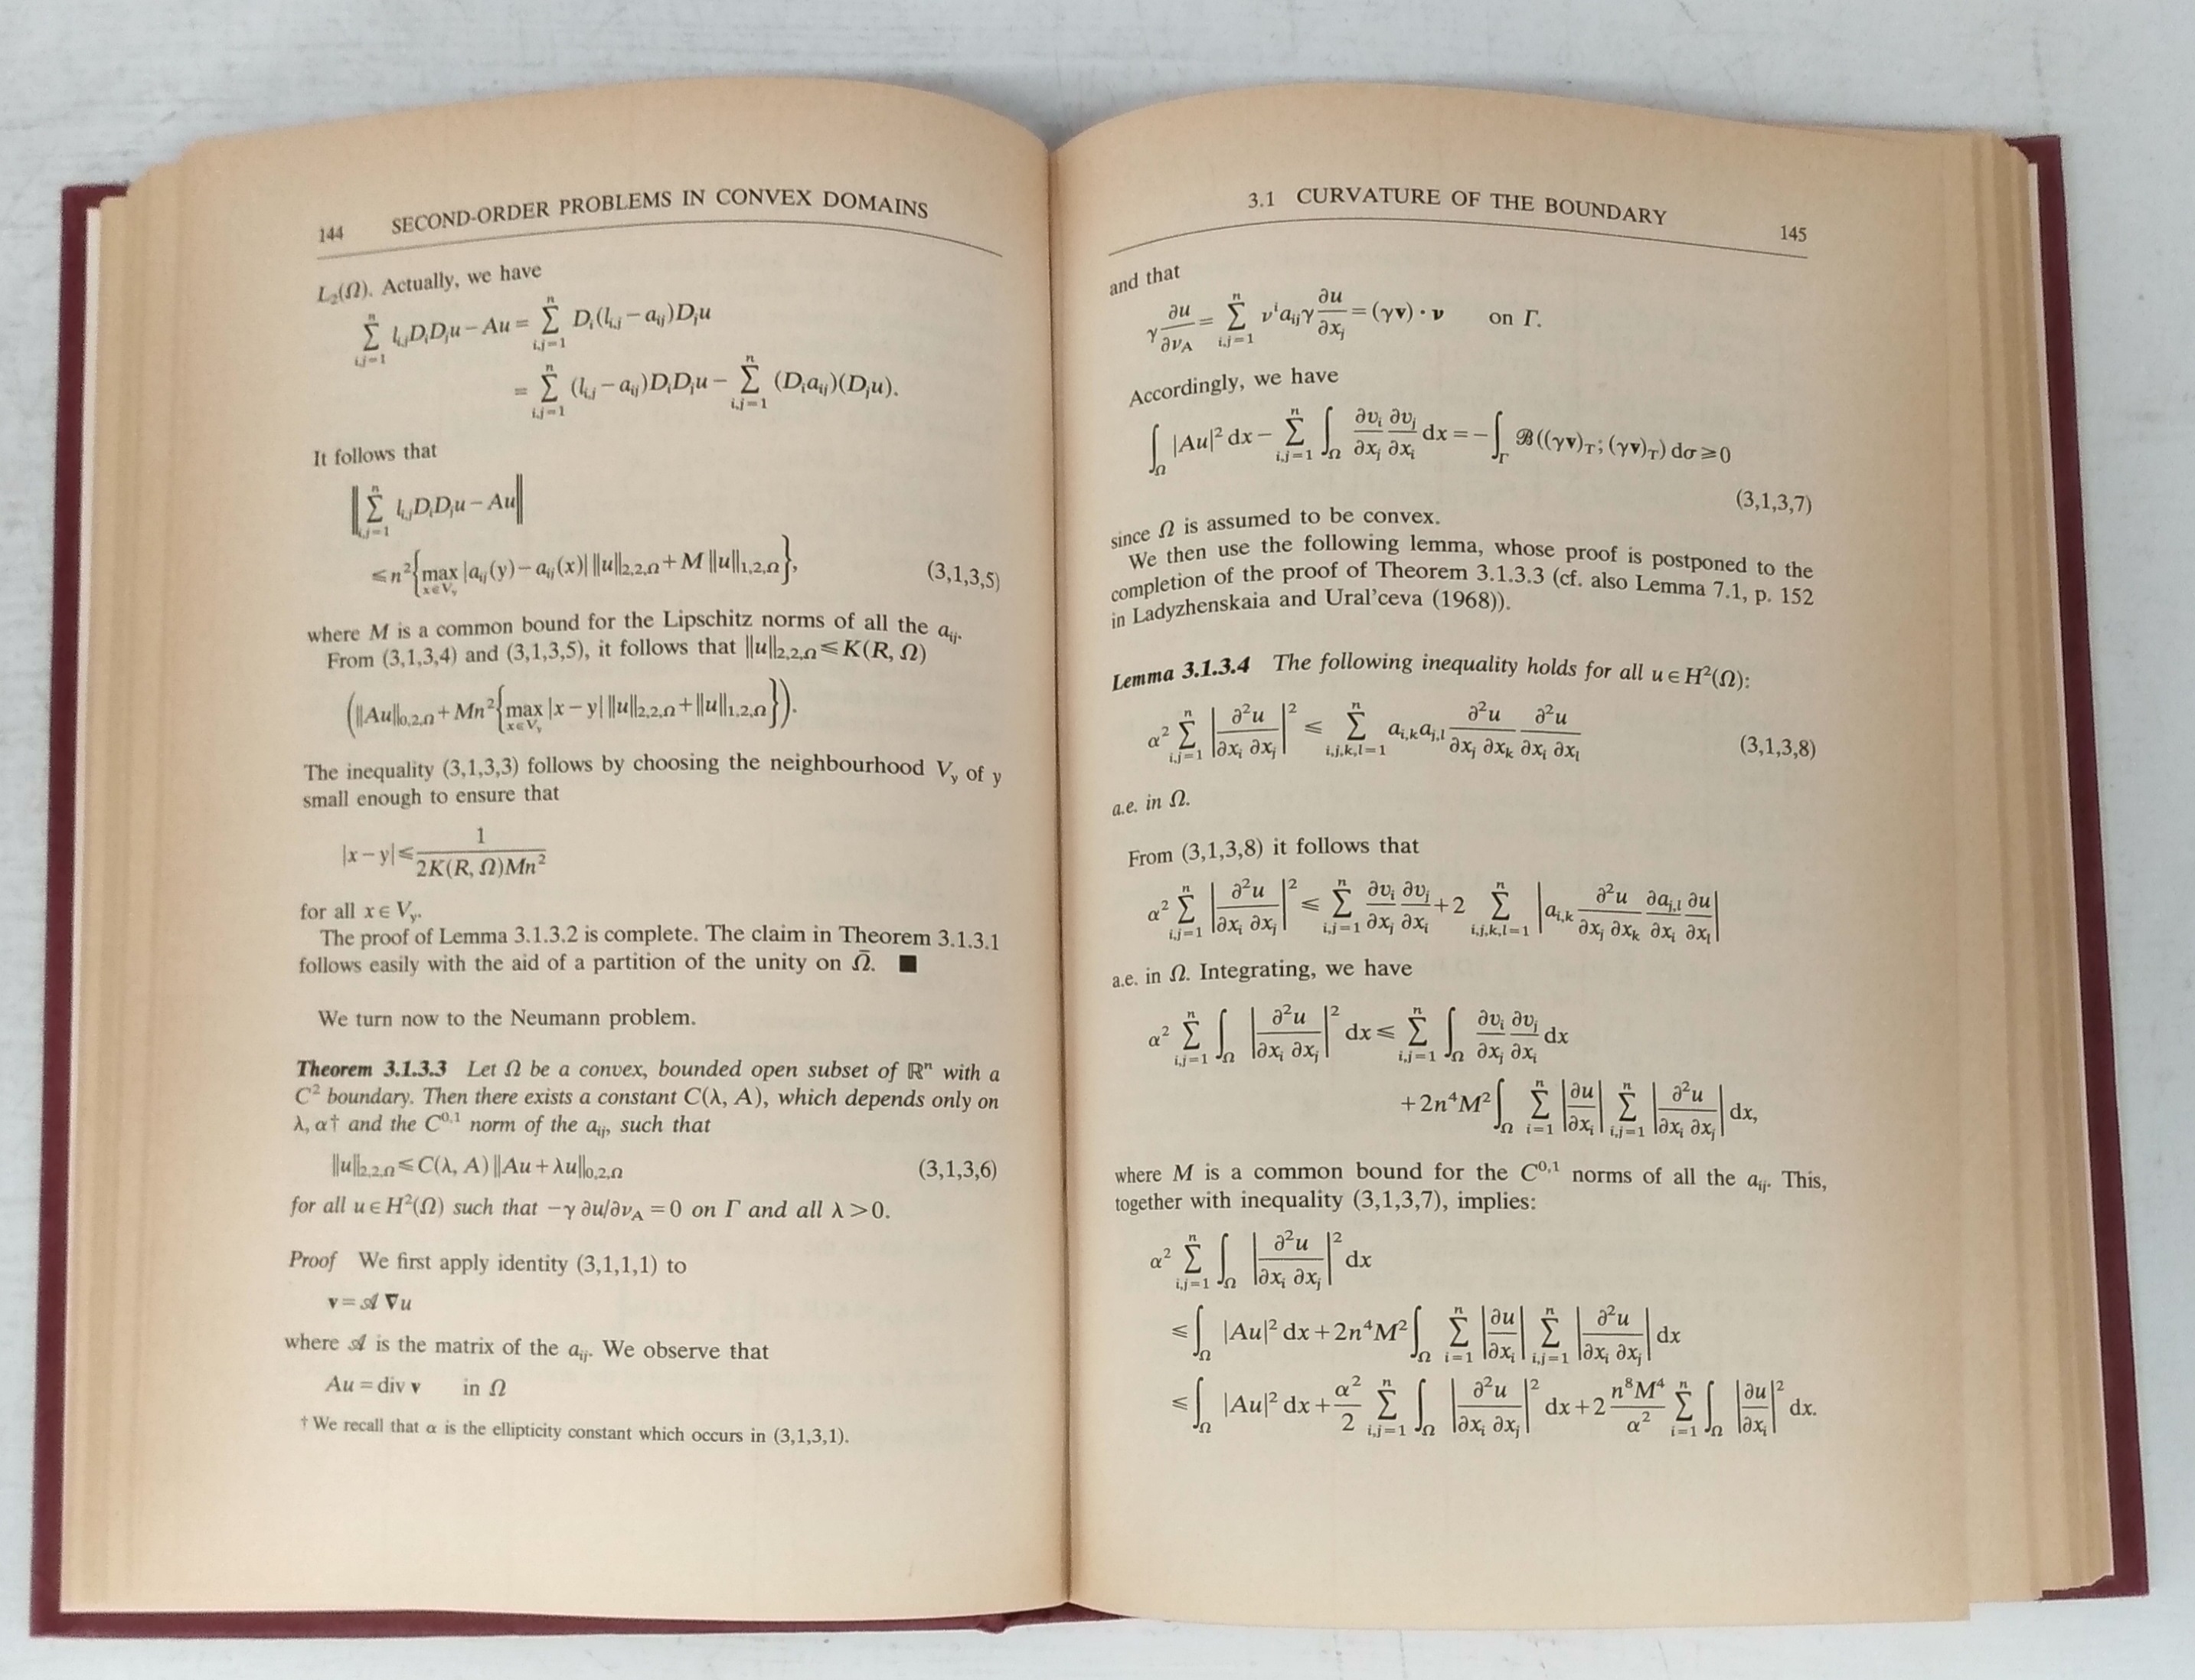 144 SECOND-ORDER PROBLEMS IN CONVEX DOMAINS
L₂(Ω). Actually, we have
∑_{i,j=1}^{n} l_{i,j}D_iD_ju − Au = ∑_{i,j=1}^{n} D_i(l_{i,j} − a_{ij})D_ju
= ∑_{i,j=1}^{n} (l_{i,j} − a_{ij})D_iD_ju − ∑_{i,j=1}^{n} (D_ia_{ij})(D_ju).
It follows that
‖∑_{i,j=1}^{n} l_{i,j}D_iD_ju − Au‖
≤ n²{max_{x∈V_y} |a_{ij}(y) − a_{ij}(x)| ‖u‖_{2,2,Ω} + M ‖u‖_{1,2,Ω}}, (3,1,3,5)
where M is a common bound for the Lipschitz norms of all the a_{ij}.
From (3,1,3,4) and (3,1,3,5), it follows that ‖u‖_{2,2,Ω} ≤ K(R, Ω)
(‖Au‖_{0,2,Ω} + Mn²{max_{x∈V_y} |x − y| ‖u‖_{2,2,Ω} + ‖u‖_{1,2,Ω}}).
The inequality (3,1,3,3) follows by choosing the neighbourhood V_y of y
small enough to ensure that
|x − y| ≤ 1/(2K(R, Ω)Mn²)
for all x ∈ V_y.
The proof of Lemma 3.1.3.2 is complete. The claim in Theorem 3.1.3.1
follows easily with the aid of a partition of the unity on Ω̄. ■
We turn now to the Neumann problem.
Theorem 3.1.3.3 Let Ω be a convex, bounded open subset of ℝⁿ with a
C² boundary. Then there exists a constant C(λ, A), which depends only on
λ, α† and the C^{0,1} norm of the a_{ij}, such that
‖u‖_{2,2,Ω} ≤ C(λ, A) ‖Au + λu‖_{0,2,Ω} (3,1,3,6)
for all u ∈ H²(Ω) such that −γ ∂u/∂ν_A = 0 on Γ and all λ > 0.
Proof We first apply identity (3,1,1,1) to
v = 𝒜 ∇u
where 𝒜 is the matrix of the a_{ij}. We observe that
Au = div v in Ω
† We recall that α is the ellipticity constant which occurs in (3,1,3,1).
3.1 CURVATURE OF THE BOUNDARY 145
and that
γ ∂u/∂ν_A = ∑_{i,j=1}^{n} ν^i a_{ij}γ ∂u/∂x_j = (γv) · ν on Γ.
Accordingly, we have
∫_Ω |Au|² dx − ∑_{i,j=1}^{n} ∫_Ω ∂v_i/∂x_j ∂v_j/∂x_i dx = −∫_Γ ℬ((γv)_T; (γv)_T) dσ ≥ 0
(3,1,3,7)
since Ω is assumed to be convex.
We then use the following lemma, whose proof is postponed to the
completion of the proof of Theorem 3.1.3.3 (cf. also Lemma 7.1, p. 152
in Ladyzhenskaia and Ural'ceva (1968)).
Lemma 3.1.3.4 The following inequality holds for all u ∈ H²(Ω):
α² ∑_{i,j=1}^{n} |∂²u/∂x_i ∂x_j|² ≤ ∑_{i,j,k,l=1}^{n} a_{i,k}a_{j,l} ∂²u/∂x_j ∂x_k ∂²u/∂x_i ∂x_l (3,1,3,8)
a.e. in Ω.
From (3,1,3,8) it follows that
α² ∑_{i,j=1}^{n} |∂²u/∂x_i ∂x_j|² ≤ ∑_{i,j=1}^{n} ∂v_i/∂x_j ∂v_j/∂x_i + 2 ∑_{i,j,k,l=1}^{n} |a_{i,k} ∂²u/∂x_j ∂x_k ∂a_{j,l}/∂x_i ∂u/∂x_l|
a.e. in Ω. Integrating, we have
α² ∑_{i,j=1}^{n} ∫_Ω |∂²u/∂x_i ∂x_j|² dx ≤ ∑_{i,j=1}^{n} ∫_Ω ∂v_i/∂x_j ∂v_j/∂x_i dx
+ 2n⁴M² ∫_Ω ∑_{i=1}^{n} |∂u/∂x_i| ∑_{i,j=1}^{n} |∂²u/∂x_i ∂x_j| dx,
where M is a common bound for the C^{0,1} norms of all the a_{ij}. This,
together with inequality (3,1,3,7), implies:
α² ∑_{i,j=1}^{n} ∫_Ω |∂²u/∂x_i ∂x_j|² dx
≤ ∫_Ω |Au|² dx + 2n⁴M² ∫_Ω ∑_{i=1}^{n} |∂u/∂x_i| ∑_{i,j=1}^{n} |∂²u/∂x_i ∂x_j| dx
≤ ∫_Ω |Au|² dx + α²/2 ∑_{i,j=1}^{n} ∫_Ω |∂²u/∂x_i ∂x_j|² dx + 2 n⁸M⁴/α² ∑_{i=1}^{n} ∫_Ω |∂u/∂x_i|² dx.